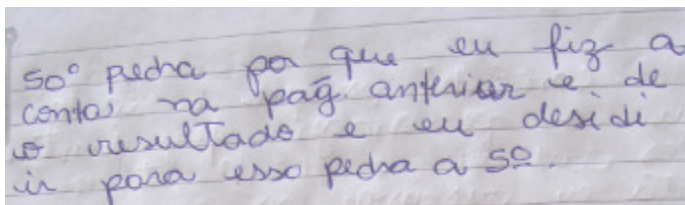 50º pedra por que eu fiz a
conta, na pag. anterior e de
o resultado e eu desidi
ir para esso pedra a 5º.